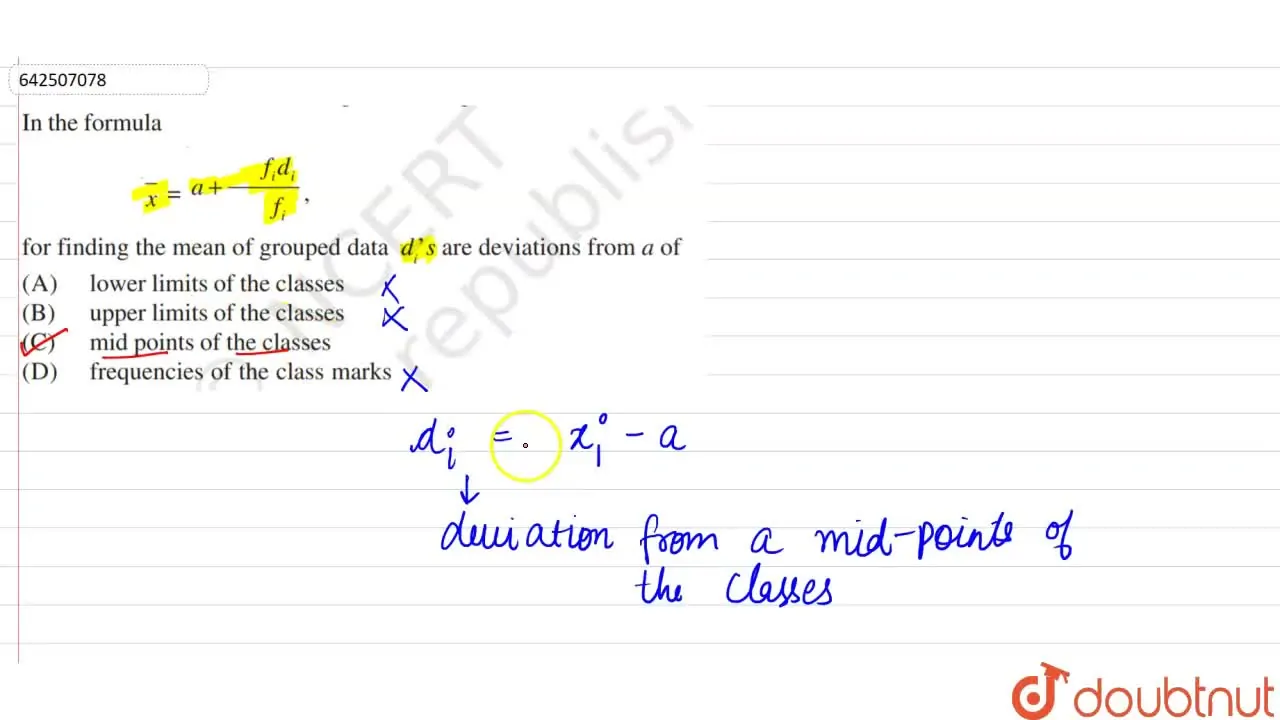 642507078
In the formula
x̄ = a + f_i d_i / f_i ,
for finding the mean of grouped data d_i's are deviations from a of
(A) lower limits of the classes ×
(B) upper limits of the classes ×
(C) mid points of the classes ✓
(D) frequencies of the class marks ×
d_i = x_i - a
↓
deviation from a mid-points of
the classes
NCERT
republis
doubtnut